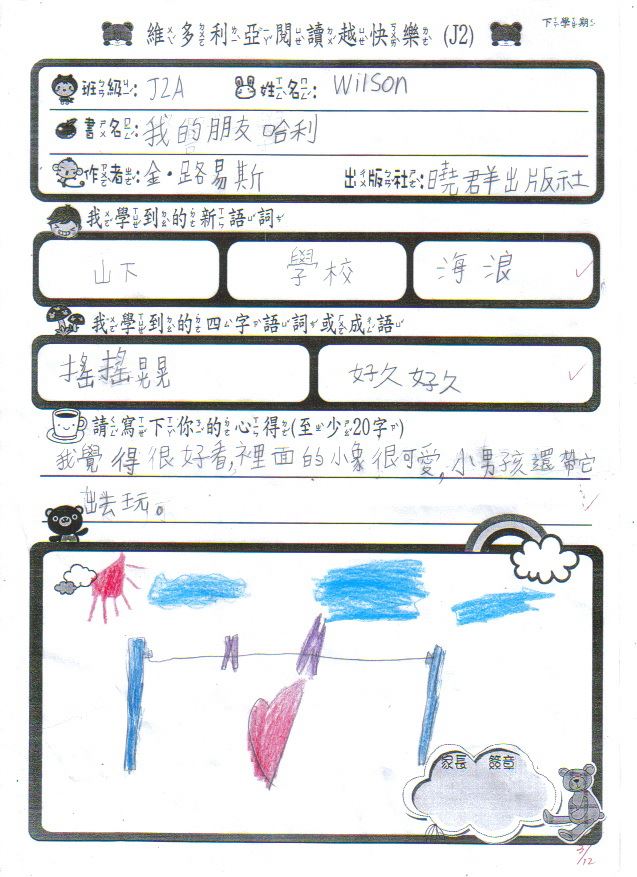 下學期
維多利亞閱讀越快樂 (J2)
班級: J2A 姓名: Wilson
書名: 我的朋友哈利
作者: 金·路易斯 出版社: 曉群出版社
我學到的新語詞
山下 學校 海浪
我學到的四字語詞或成語
搖搖晃晃 好久好久
請寫下你的心得(至少20字)
我覺得很好看,裡面的小象很可愛,小男孩還帶它
出去玩。
家長 簽章
3/12